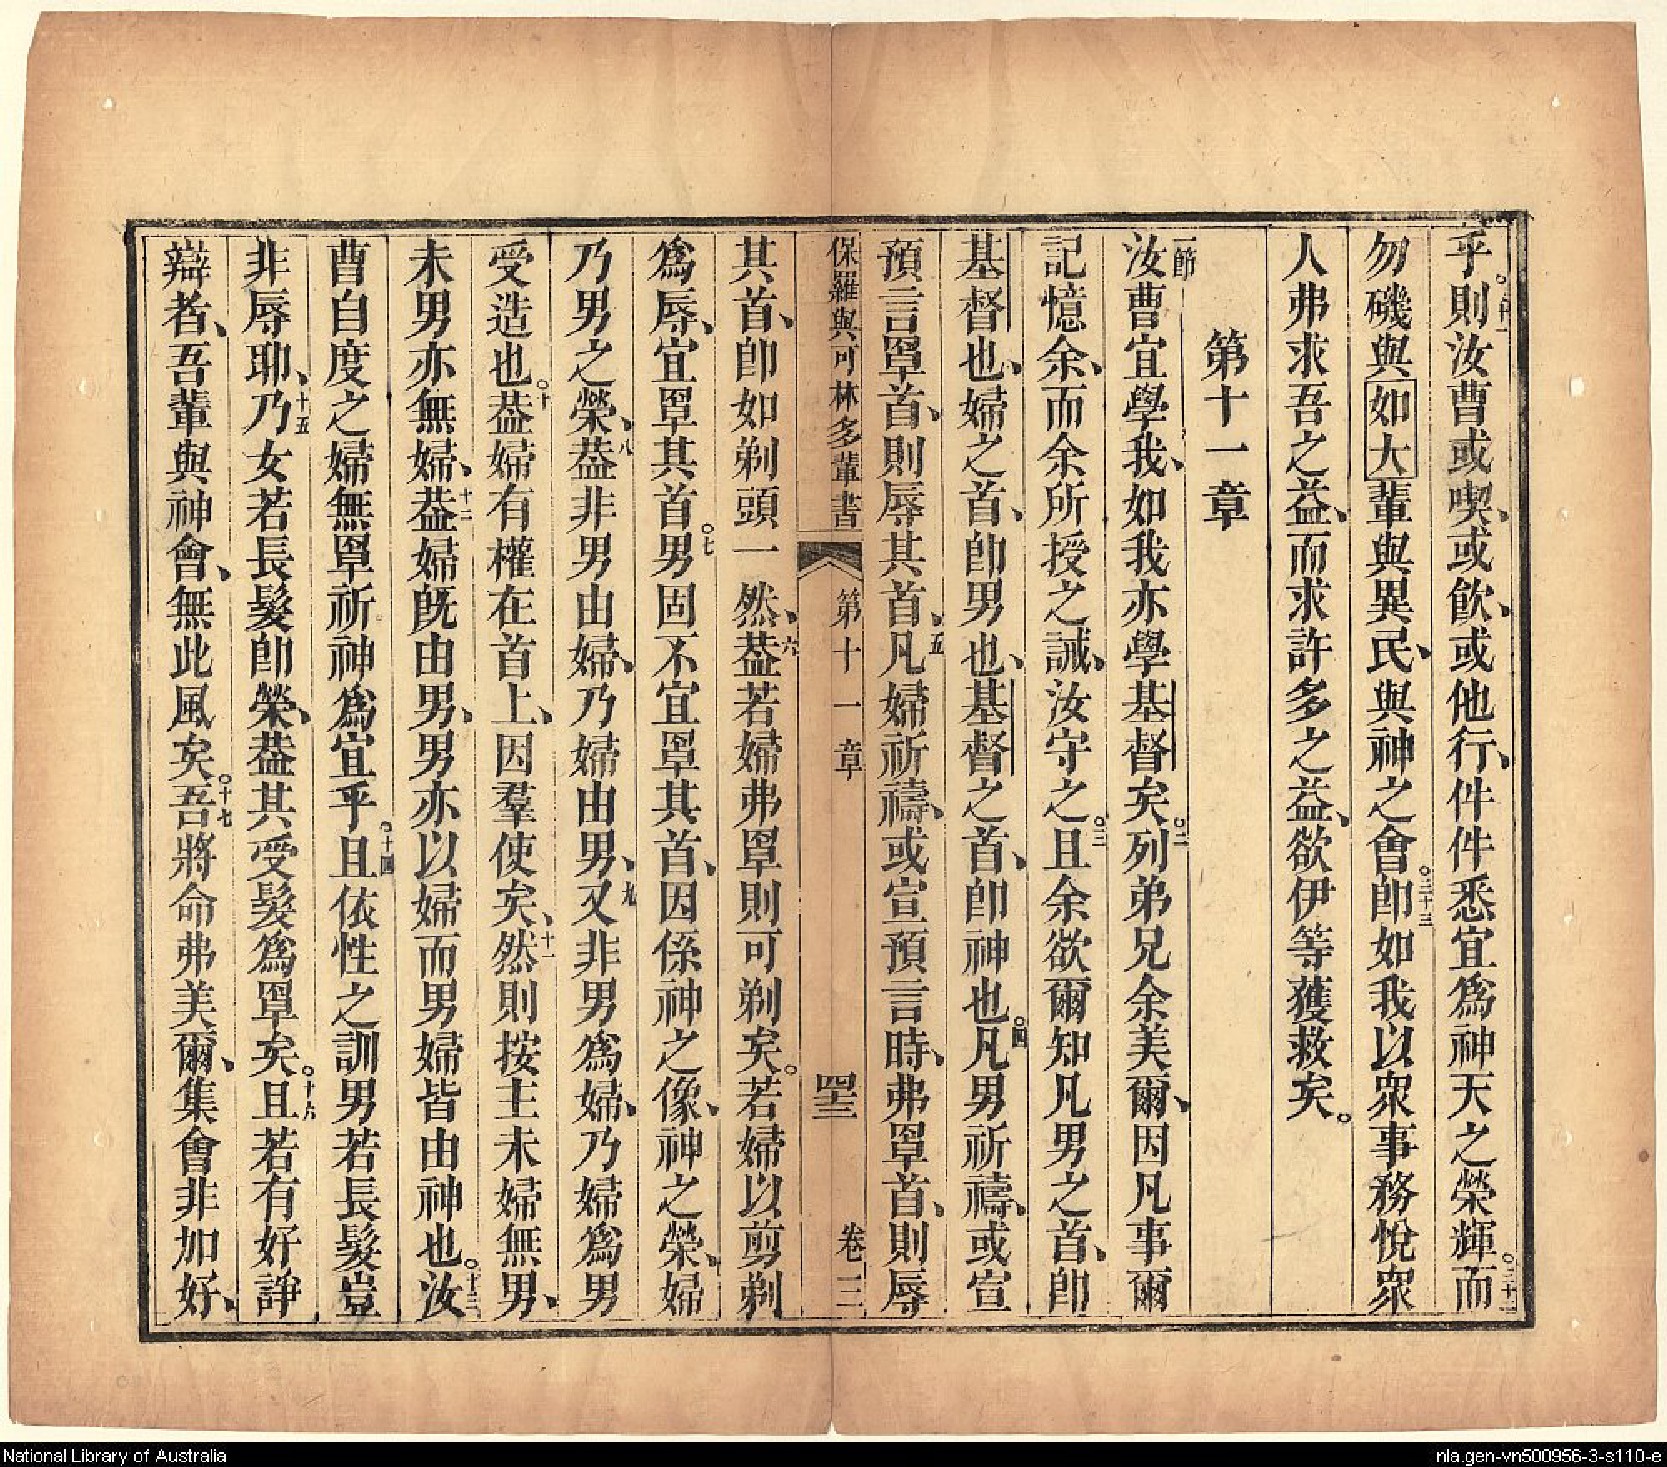 乎。三十一則汝曹或喫、或飲、或他行、件件悉宜爲神天之榮輝。三十二而
勿磯與如大輩與異民、與神之會。三十三卽如我以衆事務悅衆
人弗求吾之益、而求許多之益、欲伊等獲救矣。
第十一章
一節汝曹宜學我、如我亦學基督矣。二列弟兄余美爾、因凡事爾
記憶余、而余所授之誡、汝守之。三且余欲爾知凡男之首、卽
基督也、婦之首、卽男也、基督之首、卽神也。四凡男祈禱、或宣
預言罩首、則辱其首、五凡婦祈禱、或宣預言時、弗罩首、則辱
保羅與可林多輩書 第十一章 四十三 卷三
其首、卽如剃頭一然、六葢若婦弗罩則可剃矣。若婦以剪剃
爲辱、宜罩其首。七男固不宜罩其首、因係神之像、神之榮、婦
乃男之榮、八葢非男由婦、乃婦由男、九又非男爲婦、乃婦爲男
受造也。十葢婦有權在首上、因羣使矣、十一然則按主未婦無男、
未男亦無婦、十二葢婦旣由男、男亦以婦而男婦皆由神也。十三汝
曹自度之婦無罩祈神爲宜乎。十四且依性之訓男若長髮豈
非辱耶、十五乃女若長髮卽榮、葢其受髮爲罩矣。十六且若有好諍
辯者、吾輩與神會、無此風矣。十七吾將命弗美爾、集會非加好、
National Library of Australia
nla.gen-vn500956-3-s110-e